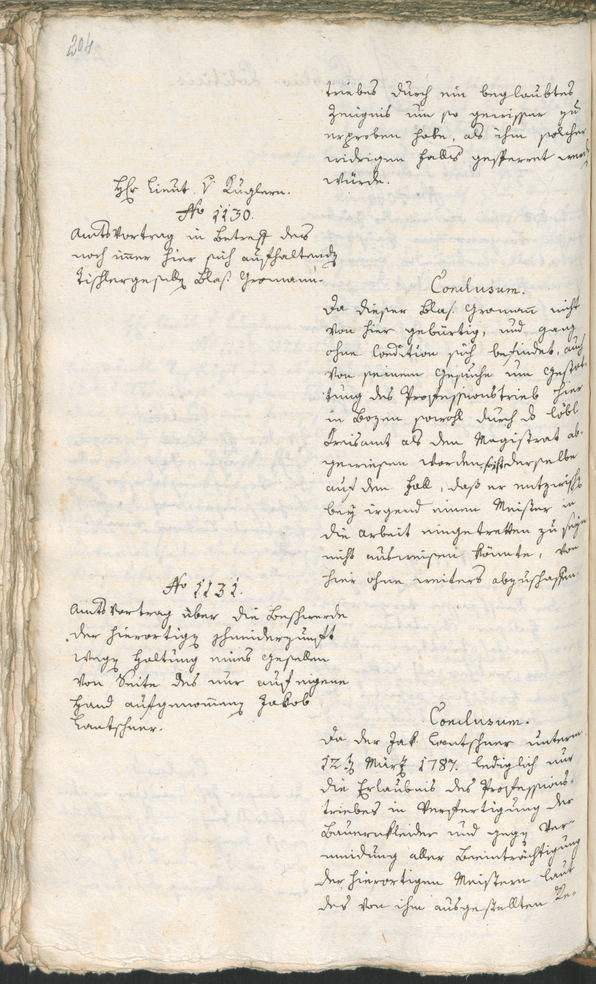 204
triebes durch ein beglaubtes
Zeugnis um so gewisser zu
erproben habe, als ihm solcher
widrigen Falls gesperret werden
würde.
Hr Lieut. v Kuglern.
No 1130.
Amtsvortrag in Betreff des
noch imer hier sich aufhaltenden
Tischlergesellen Blas. Gromann.
Conclusum.
Da dieser Blas. Gromann nicht
von hier gebürtig, und ganz
ohne Condition sich befindet, auch
von seinem Gesuche um Gestat¬
tung des Professionstrieb hier
in Bozen sowohl durch das löbl.
Kreisamt als den Magistrat ab¬
gewiesen worden, ist derselbe
auf den Fall, daß er entzwischen
bey irgend einen Meister in
die Arbeit eingetretten zu seyn
nicht ausweisen könnte, von
hier ohne weiters abzuschaffen.
No 1131.
Amtsvortrag über die Beschwerde
der hierortigen Schneiderzunft
wegen Haltung eines Gesellen
von Seite des nur auf eigene
Hand aufgenomenen Jakob
Lantschner.
Conclusum.
Da der Jak. Lantschner unterm
12ten März 1787. lediglich nur
die Erlaubnis des Professions¬
triebes in Verfertigung der
Bauernkleider und gegen Ver¬
meidung aller Beeinträchtigung
der hierortigen Meistern laut
des von ihm ausgestellten Re¬